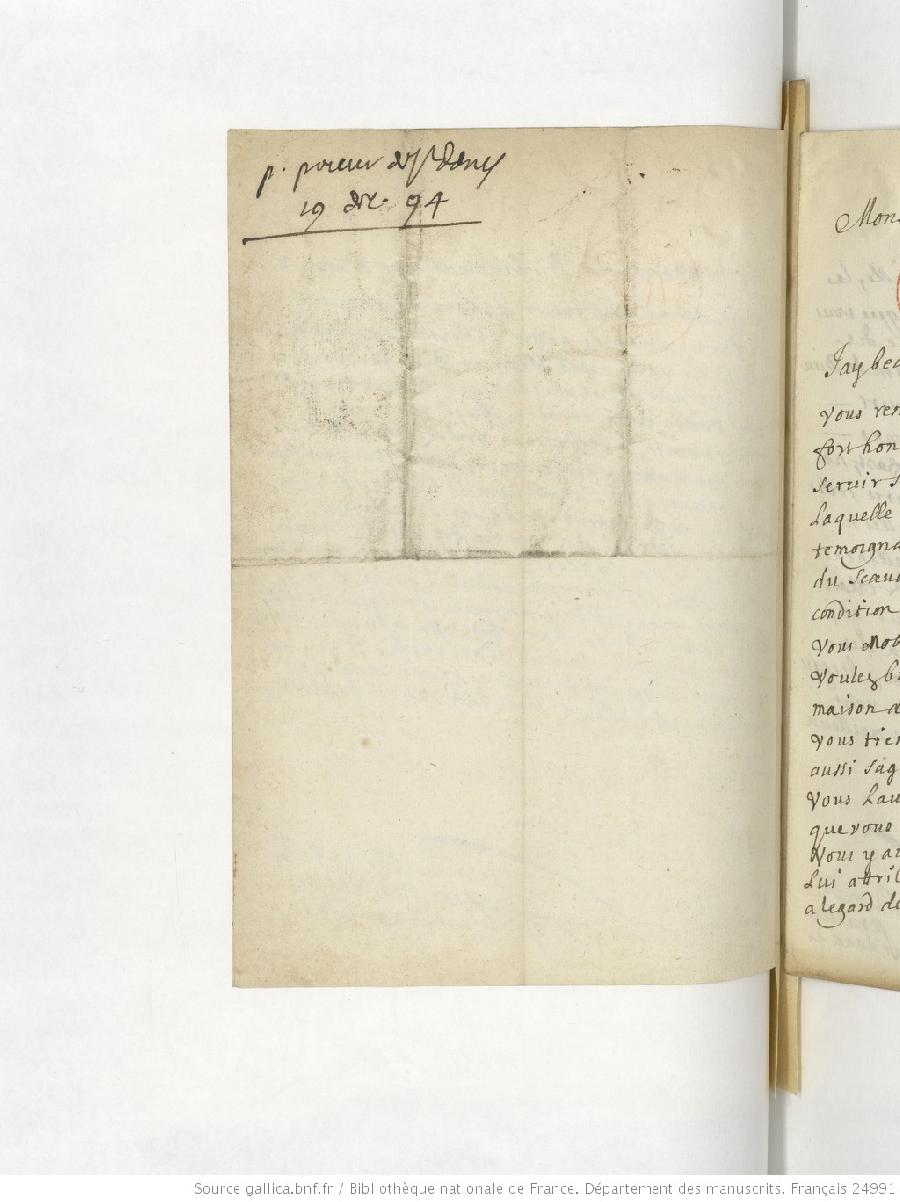 p. prieur de St denis
19 dec. 94
Mons
Jay bea
vous ren
fort hon
servir s
Laquelle
temoigna
du Scavo
condition
vous Mo
voulez b
maison d
vous tien
aussi sag
vous Lau
que vous
Nous y a
Lui attri
a legard d
Source gallica.bnf.fr / Bibliothèque nationale de France. Département des manuscrits. Français 24991